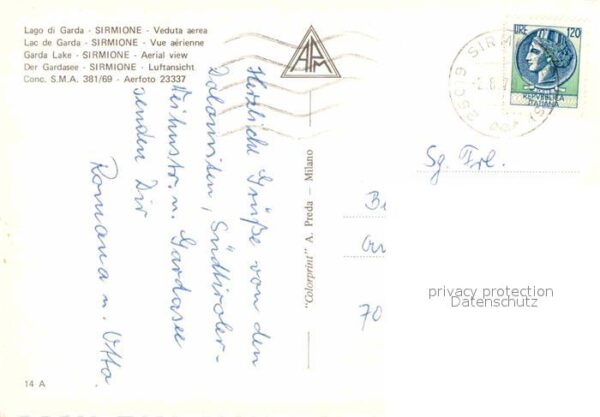 Lago di Garda - SIRMIONE - Veduta aerea
Lac de Garda - SIRMIONE - Vue aérienne
Garda Lake - SIRMIONE - Aerial view
Der Gardasee - SIRMIONE - Luftansicht
Conc. S.M.A. 381/69 - Aerfoto 23337
APM
Herzliche Grüße von den
Dolomiten, Südtiroler-
Weinstr. u. Gardasee
senden Dir
Romana u. Otto.
14 A
"Colorprint" A. Preda - Milano
LIRE 120
REPVBBLICA
ITALIANA
25019 SIRM
Sg. Frl.
70
privacy protection
Datenschutz